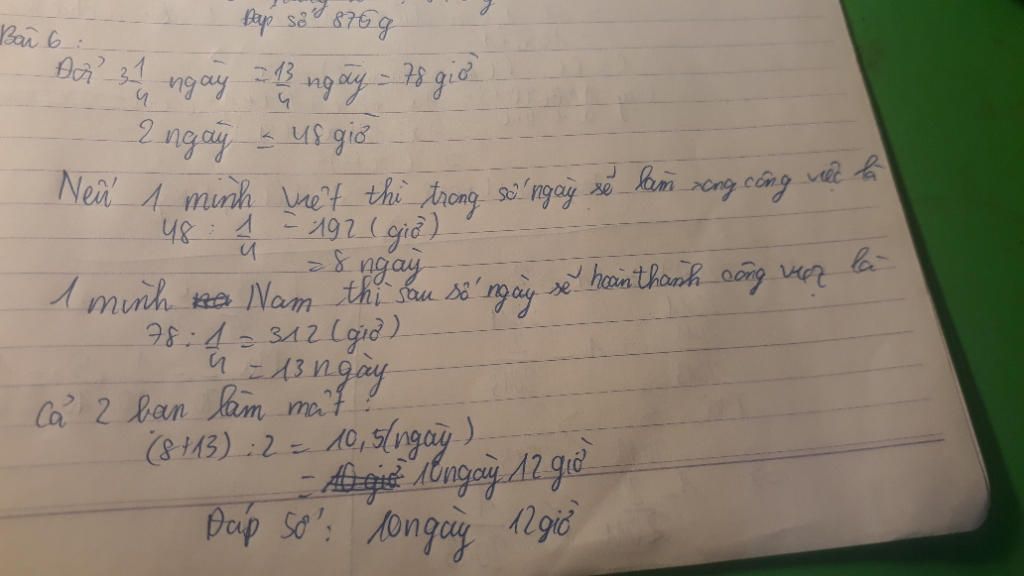 Đáp số 875 g
Bài 6 :
Đổi 3 1/4 ngày = 13/4 ngày = 78 giờ
2 ngày = 48 giờ
Nếu 1 mình việt thì trong số ngày sẽ làm xong công việc là
48 : 1/4 = 192 (giờ)
= 8 ngày
1 mình Nam thì sau số ngày sẽ hoàn thành công việc là
78 : 1/4 = 312 (giờ)
= 13 ngày
Cả 2 bạn làm mất :
(8+13) : 2 = 10,5 (ngày)
= 10 giờ 10 ngày 12 giờ
Đáp Số : 10 ngày 12 giờ